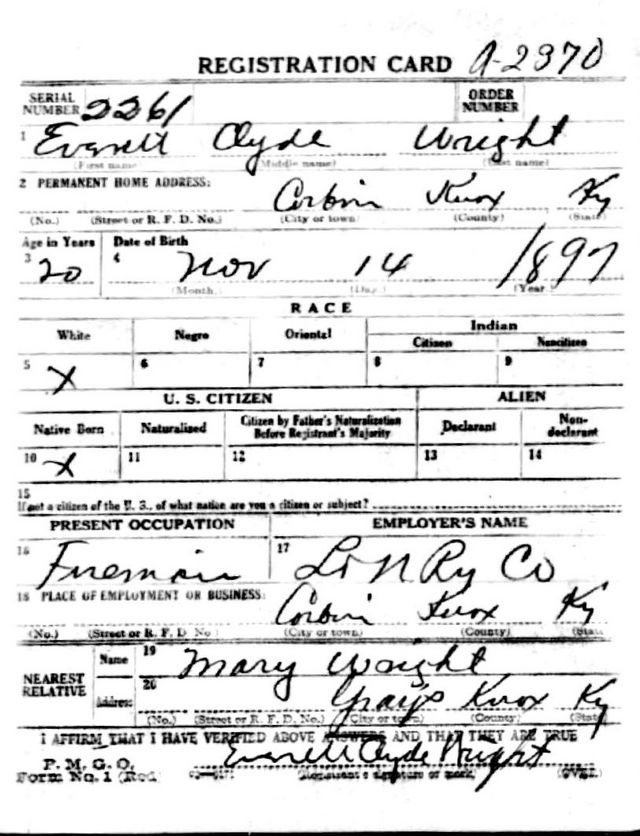 REGISTRATION CARD A-2370
SERIAL NUMBER 2261 ORDER NUMBER
1 Everett Clyde Wright
(First name) (Middle name) (Last name)
2 PERMANENT HOME ADDRESS:
Corbin Knox Ky
(No.) (Street or R. F. D. No.) (City or town) (County) (State)
Age in Years Date of Birth
3 20 4 Nov 14 1897
(Month) (Day) (Year)
RACE
White Negro Oriental Indian
Citizen Noncitizen
5 X 6 7 8 9
U. S. CITIZEN ALIEN
Native Born Naturalized Citizen by Father's Naturalization Before Registrant's Majority Declarant Non-declarant
10 X 11 12 13 14
15
If not a citizen of the U. S., of what nation are you a citizen or subject?
PRESENT OCCUPATION EMPLOYER'S NAME
16 Fireman 17 L & N Ry Co
18 PLACE OF EMPLOYMENT OR BUSINESS:
Corbin Knox Ky
(No.) (Street or R. F. D. No.) (City or town) (County) (State)
NEAREST RELATIVE Name 19 Mary Wright
Address 20 Grays Knox Ky
(No.) (Street or R. F. D. No.) (City or town) (County) (State)
I AFFIRM THAT I HAVE VERIFIED ABOVE ANSWERS AND THAT THEY ARE TRUE
P. M. G. O.
Form No. 1 (Red) Everett Clyde Wright
(Registrant's signature or mark) (OVER)